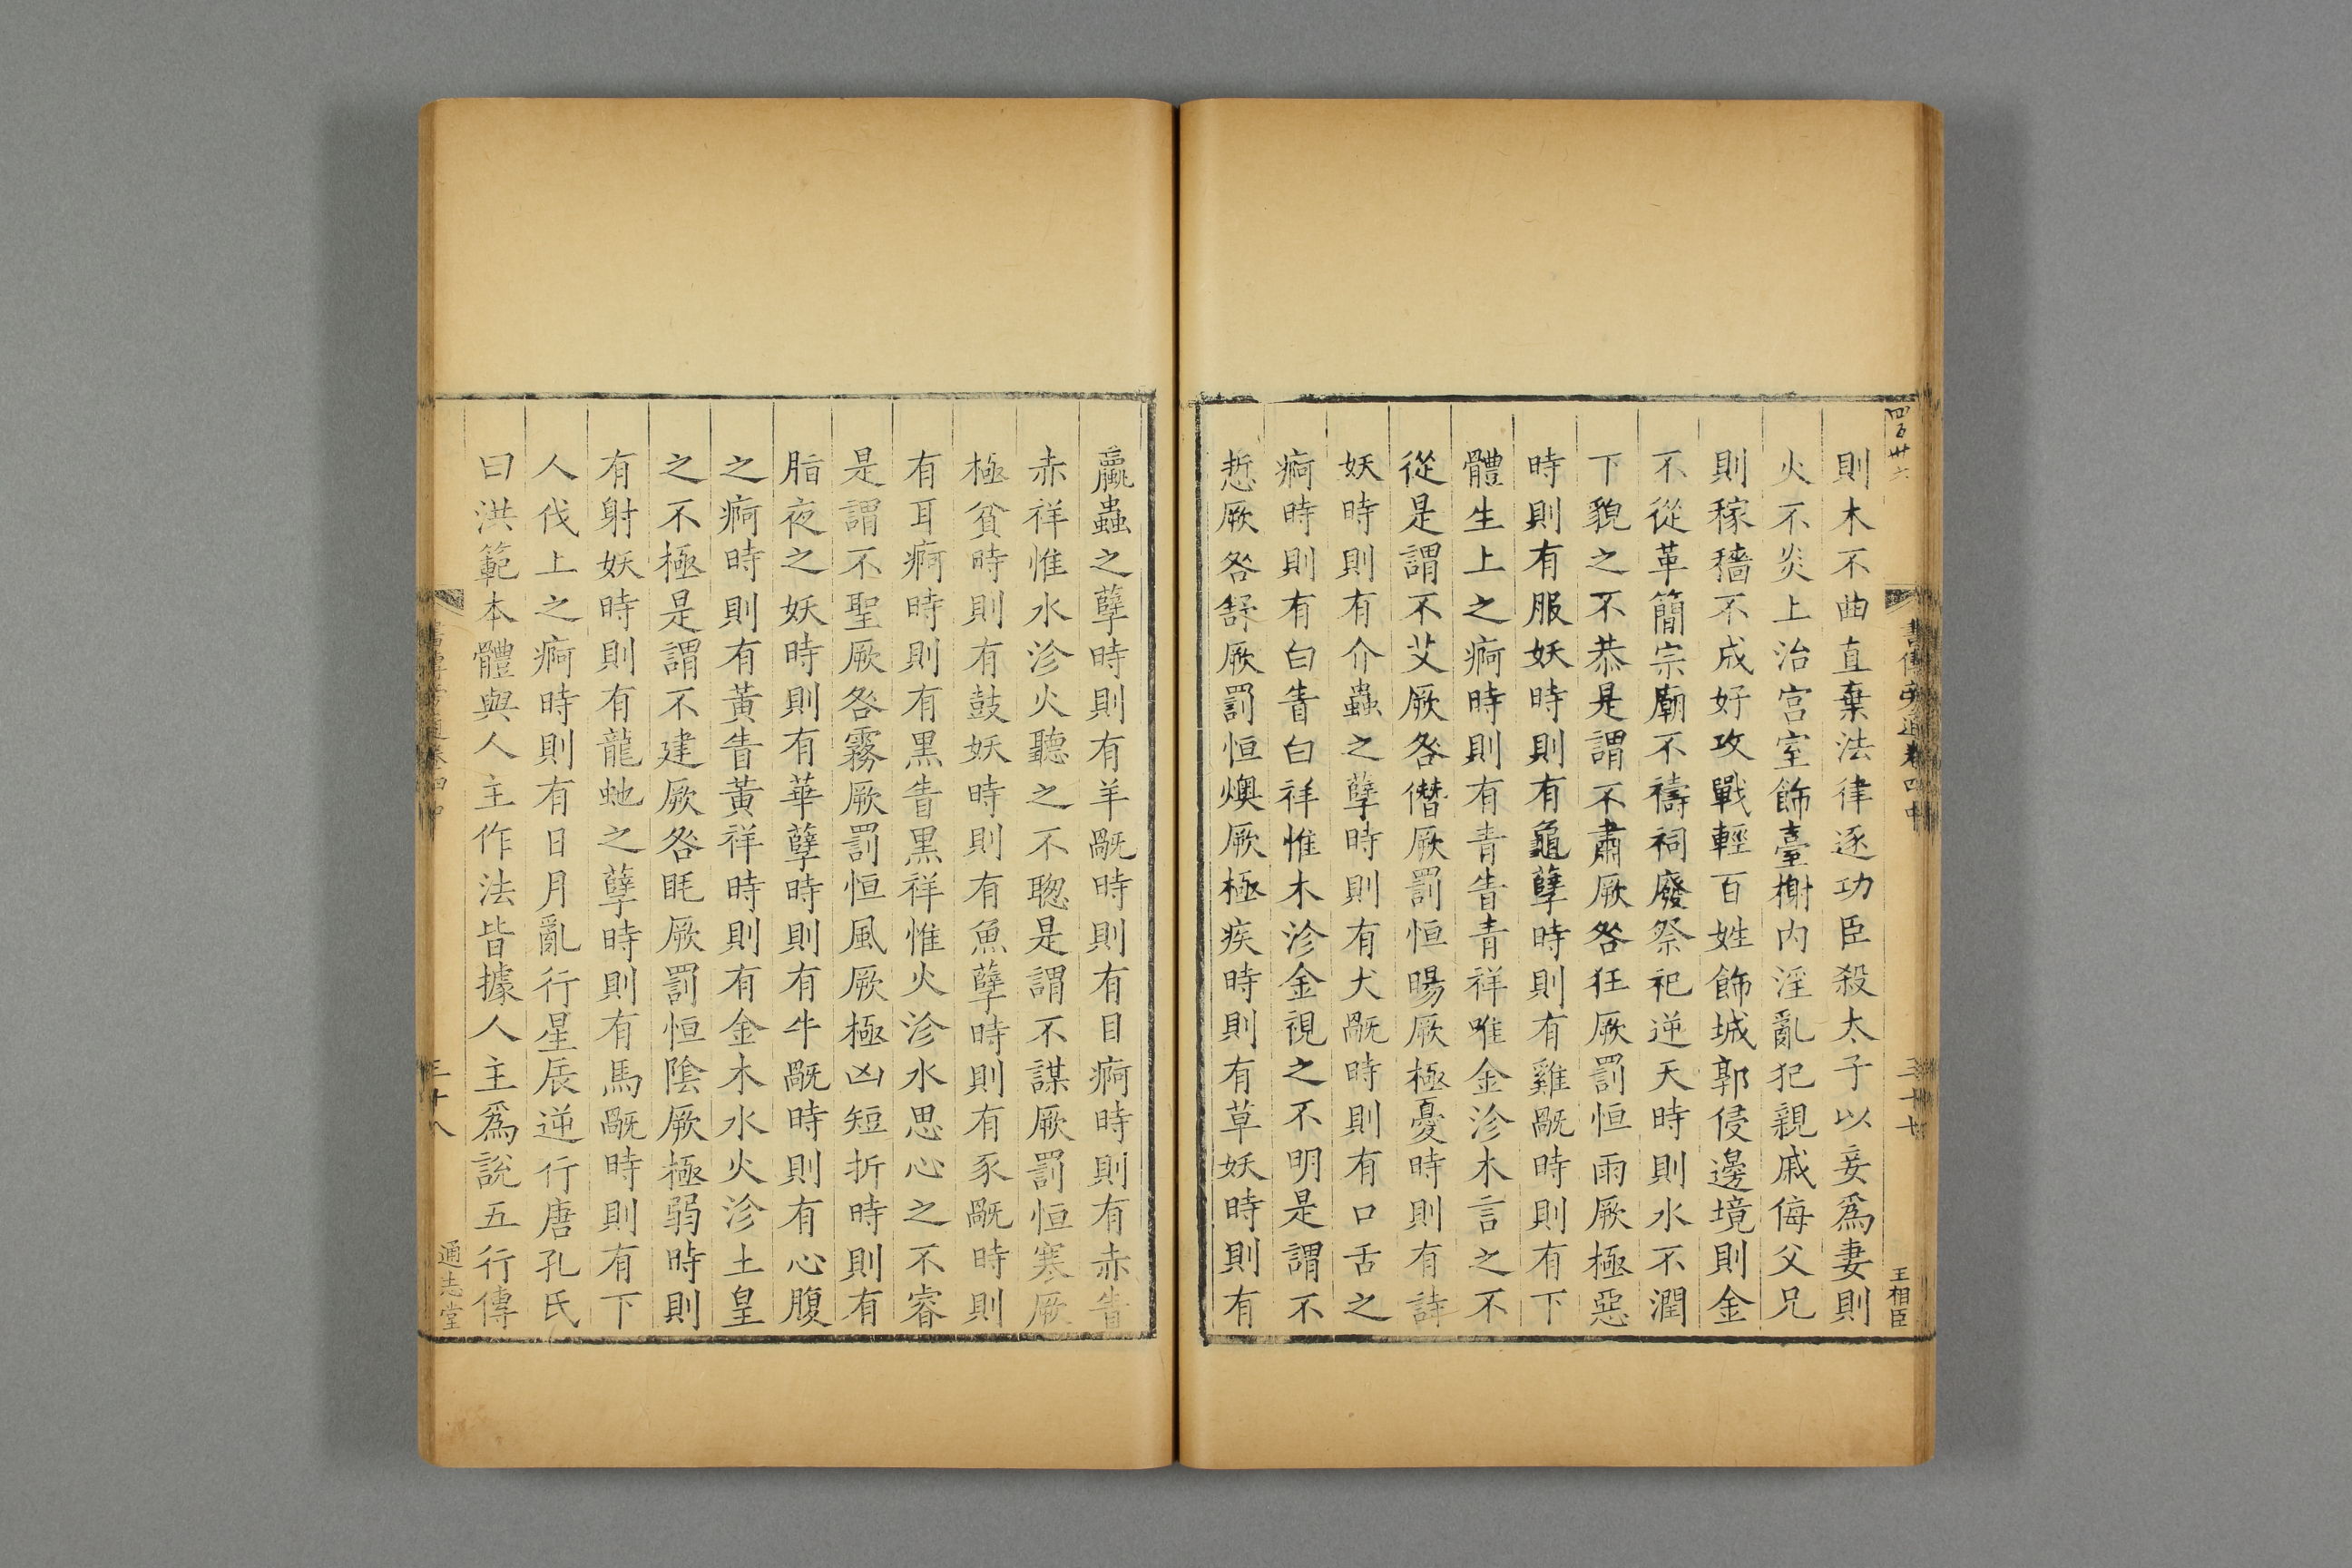 四百卅六
書傳旁通卷四中
三十七
王相臣
則木不曲直棄法律逐功臣殺太子以妾爲妻則
火不炎上治宫室飾臺榭内淫亂犯親戚侮父兄
則稼穡不成好攻戰輕百姓飾城郭侵邊境則金
不從革簡宗廟不禱祠廢祭祀逆天時則水不潤
下貌之不恭是謂不肅厥咎狂厥罰恒雨厥極惡
時則有服妖時則有龜孽時則有雞旤時則有下
體生上之痾時則有青眚青祥唯金沴木言之不
從是謂不艾厥咎僭厥罰恒暘厥極憂時則有詩
妖時則有介蟲之孽時則有犬旤時則有口舌之
痾時則有白眚白祥惟木沴金視之不明是謂不
悊厥咎舒厥罰恒燠厥極疾時則有草妖時則有
蠃蟲之孽時則有羊旤時則有目痾時則有赤眚
赤祥惟水沴火聽之不聰是謂不謀厥罰恒寒厥
極貧時則有鼓妖時則有魚孽時則有豕旤時則
有耳痾時則有黑眚黑祥惟火沴水思心之不睿
是謂不聖厥咎霧厥罰恒風厥極凶短折時則有
脂夜之妖時則有華孽時則有牛旤時則有心腹
之痾時則有黃眚黃祥時則有金木水火沴土皇
之不極是謂不建厥咎眊厥罰恒陰厥極弱時則
有射妖時則有龍虵之孽時則有馬旤時則有下
人伐上之痾時則有日月亂行星辰逆行唐孔氏
曰洪範本體與人主作法皆據人主爲說五行傳
書傳旁通卷四中
三十八
通志堂